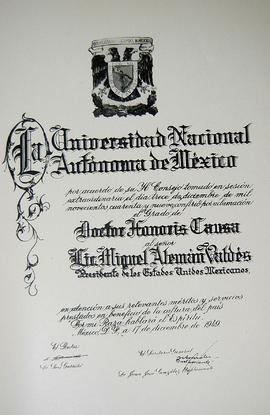 La Universidad Nacional
Autónoma de México
por acuerdo de su H. Consejo tomado en sesión
extraordinaria el día trece de diciembre de mil
novecientos cuarenta y nueve, confirió por aclamación
el Grado de
Doctor Honoris Causa
al señor
Lic. Miguel Alemán Valdés
Presidente de los Estados Unidos Mexicanos,
en atención a sus relevantes méritos y servicios
prestados en beneficio de la cultura del país
"Por mi Raza hablará el Espíritu"
México, D. F. a 17 de diciembre de 1949.
El Rector
El Secretario General
Lic. Juan José González